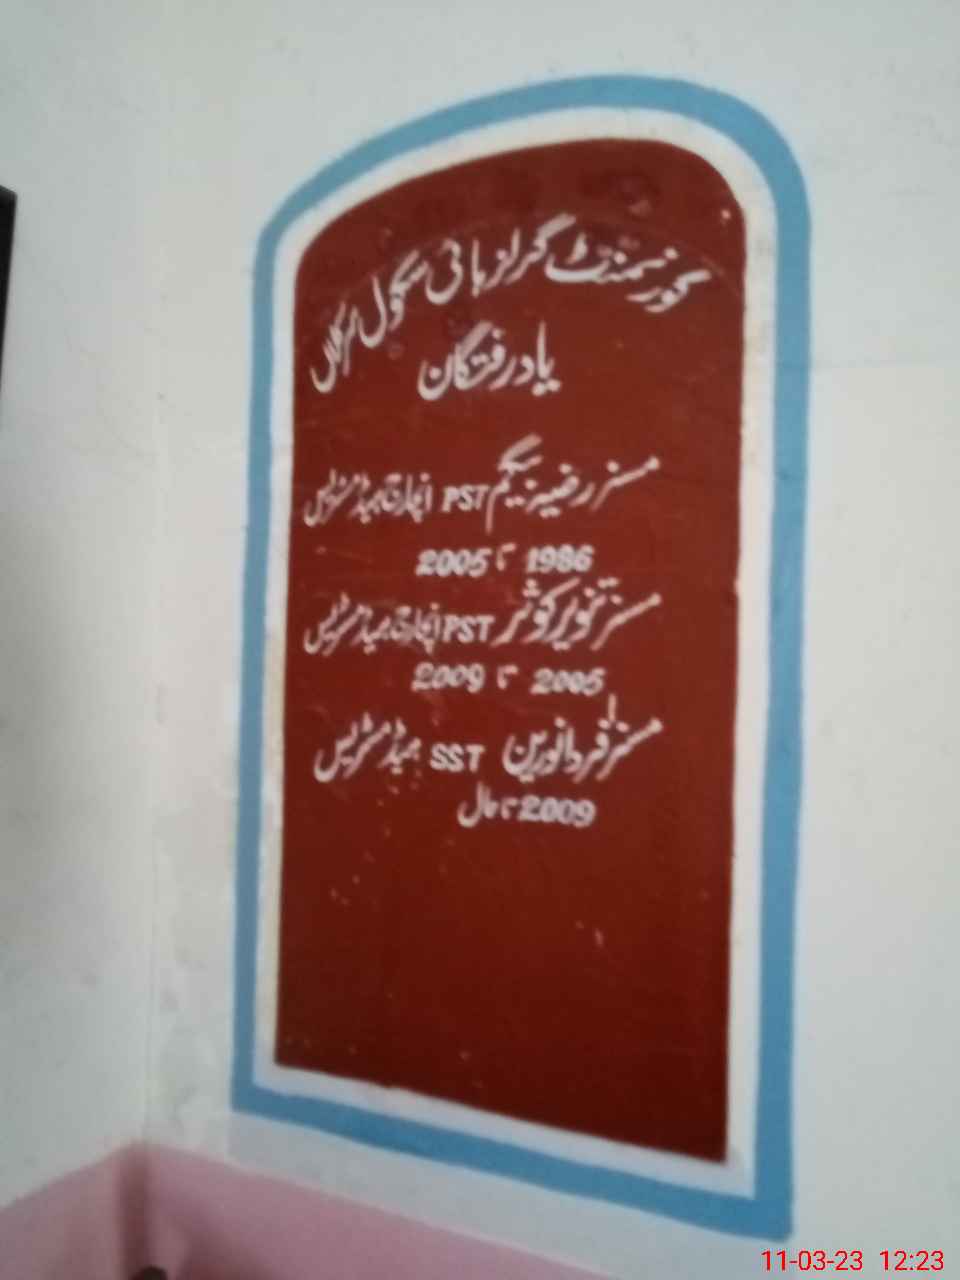 گورنمنٹ گرلز ہائی سکول
یاد رفتگان
مسز رضیہ بیگم PST انچارج ہیڈ مسٹریس
1986 تا 2005
مسز تنویر کوثر PST انچارج ہیڈ مسٹریس
2005 تا 2009
مسز نورین SST ہیڈ مسٹریس
2009 تا حال
11-03-23 12:23